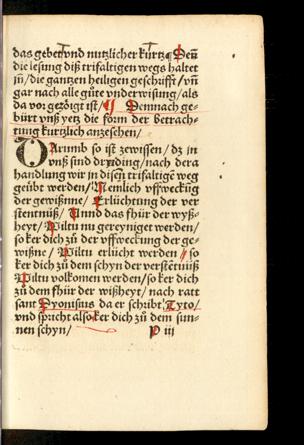 das gebet vnd nutzlicher kürtze Den̄
die lesung diß trifaltigen wegs haltet
in̄/ die gantzen heiligen geschrifft/ vn̄
gar nach alle güte vnderwisung/ als
da vor gezöigt ist/ ¶ Dennach ge-
bürt vnß yetz die form der betrach-
tung kurtzlich anzesehen/
Warumb so ist zewissen/ dz in
vnß sind dry ding/ nach dera
handlung wir in disen̄ trifaltigē weg
geübt werden/ Nemlich vffweckūg
der gewißne/ Erlüchtung der ver-
stentnuß/ Unnd das fhür der wyß-
heyt/ Wiltu nu gereyniget werden/
so ker dich zů der vffweckung der ge-
wißne/ Wiltu erlücht werden/ so
ker dich zů dem schyn der verstētnuß
Wiltu volkomen werden/ so ker dich
zů dem fhür der wißheyt/ nach ratt
sant Dyonisius da er schribt Tyto/
vnd spricht also ker dich zů dem sun-
nen schyn/
p iii